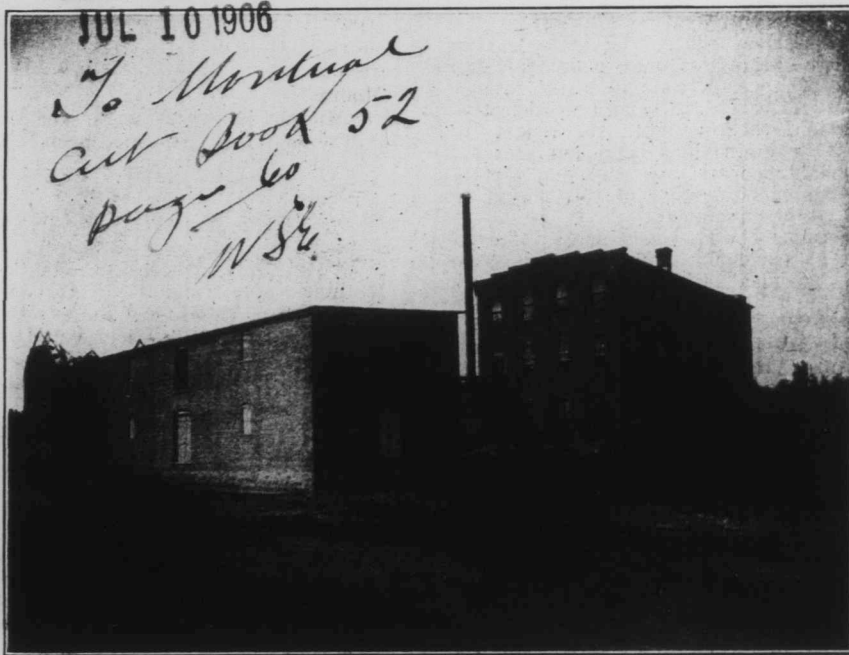 JUL 10 1906
To Montreal
Cut Book 52
Page 60